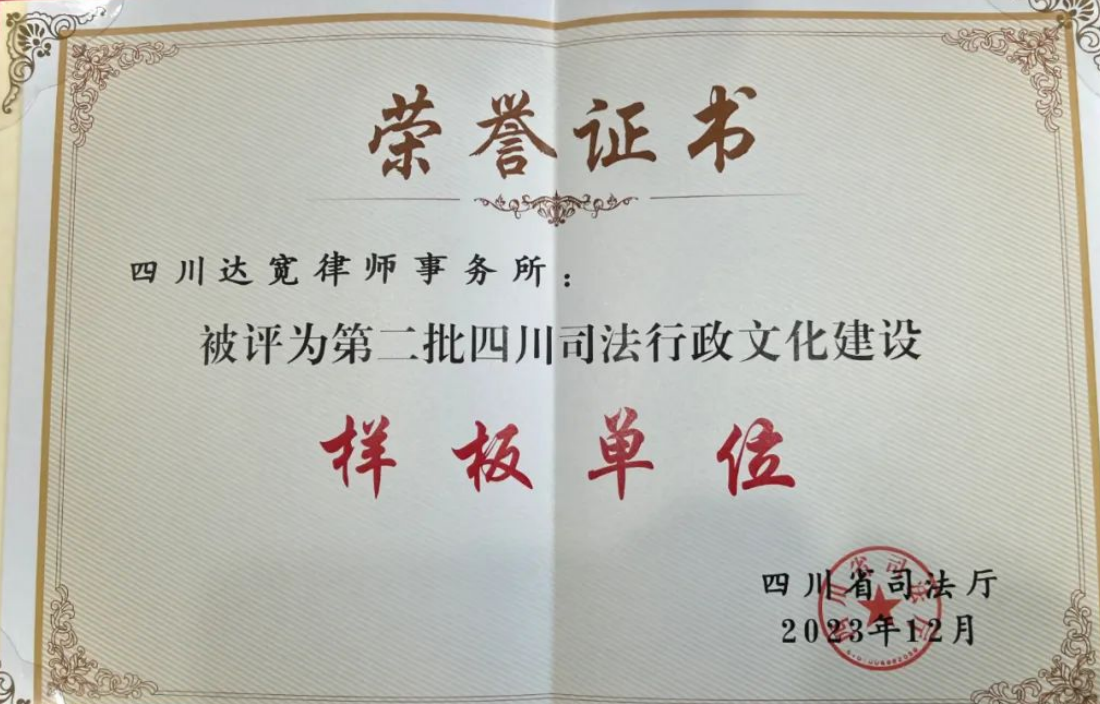 荣誉证书
四川达宽律师事务所：
被评为第二批四川司法行政文化建设
样板单位
四川省司法厅
2023年12月
四川省司法厅